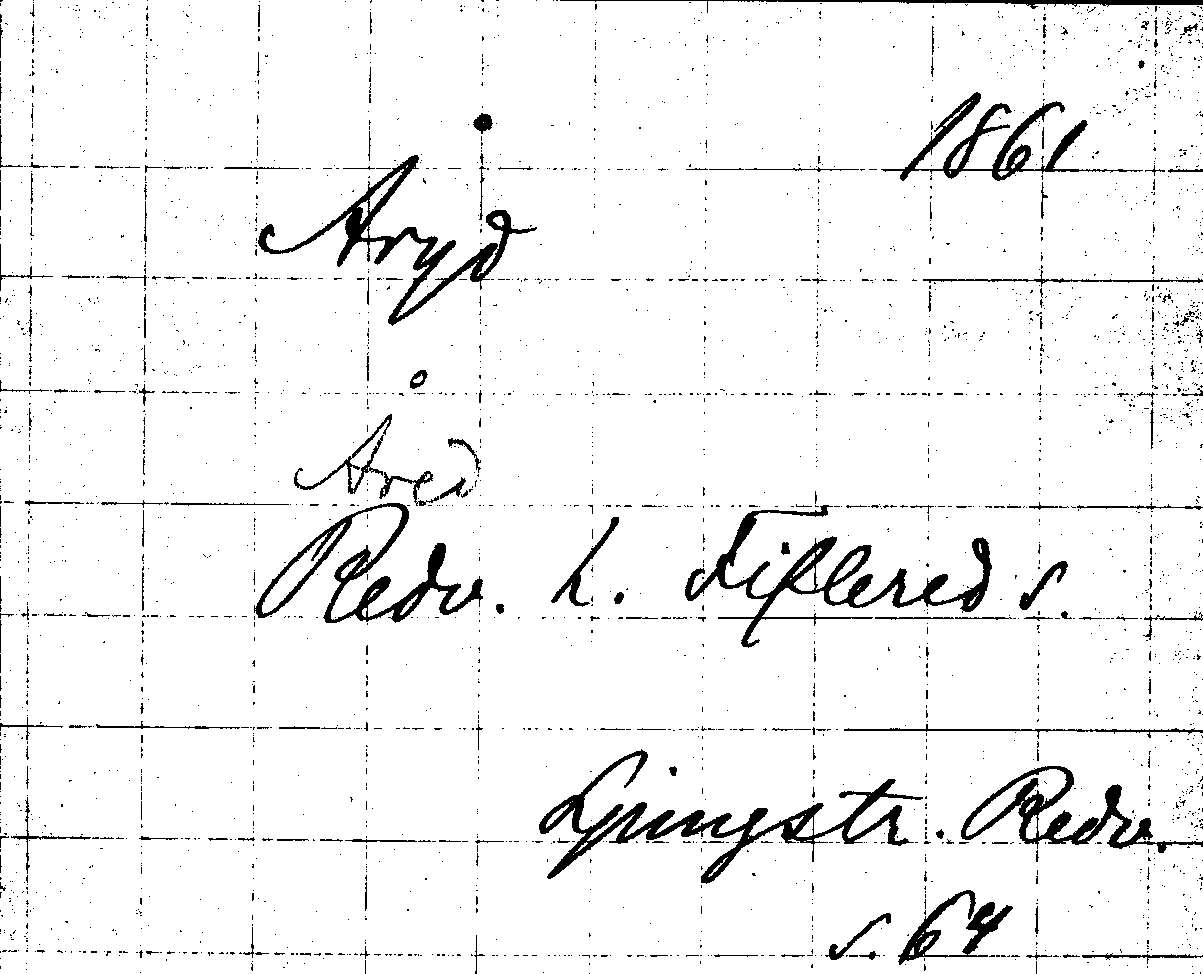 1861
Åryd
Åred
Redv. h. Fiflered s.
Ljungstr. Redv.
s. 64